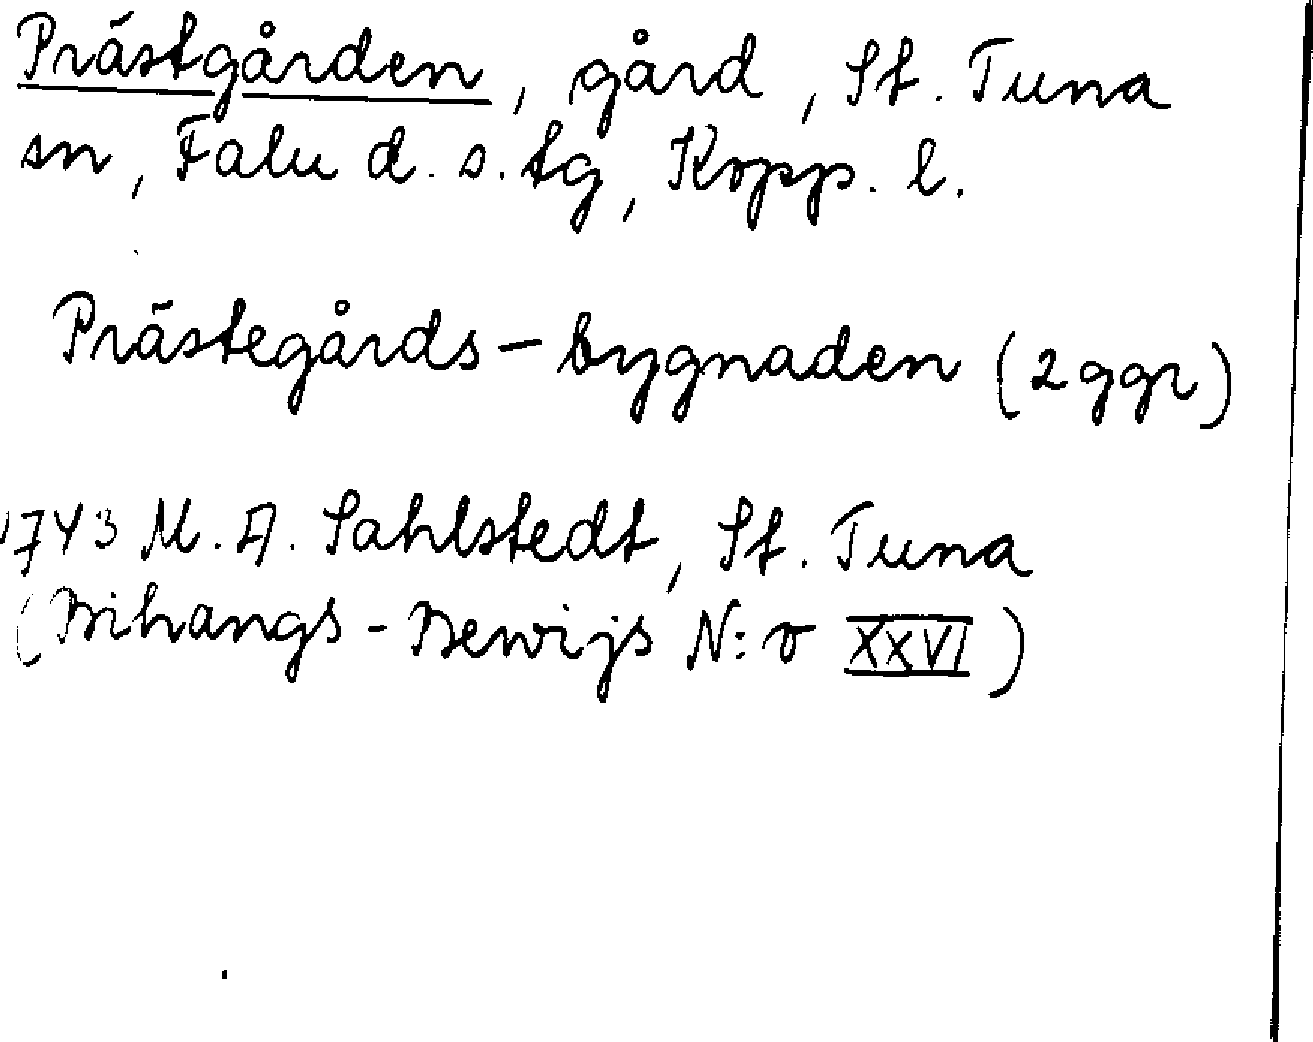 Prästgården, gård, St. Tuna
sn, Falu d. s. tg, Kopp. l.
Prästegårds-bygnaden (2 ggr)
1743 M. A. Sahlstedt, St. Tuna
(Bihangs-Bewijs N:o XXVI)